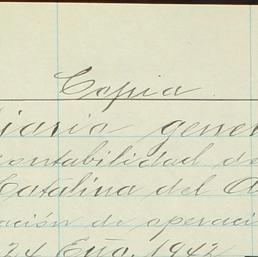 Copia
Diario gene
contabilidad de
Catalina del
ación de operaci
24 Eno. 1942